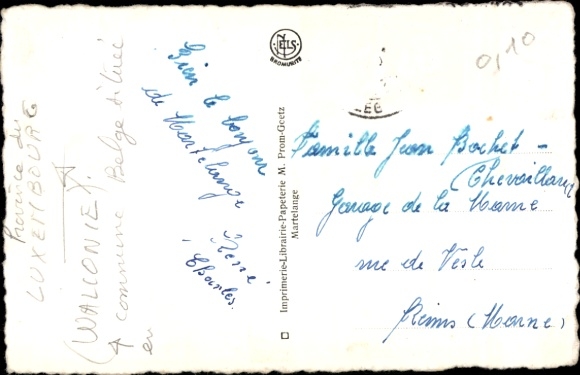 Bien le bonjour
de Martelange
René
Charles.
NELS
BROMURITE
Imprimerie-Librairie-Papeterie M. Prom-Goetz
Martelange
0,10
Famille Jean Bochet -
Chevaillard
Garage de la Marne
rue de Vesle
Reims (Marne)
Province du
LUXEMBOURG
(WALLONIE).
commune Belge située
en